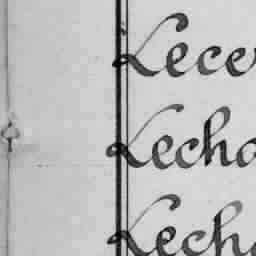 Lece
Lecho
Lech